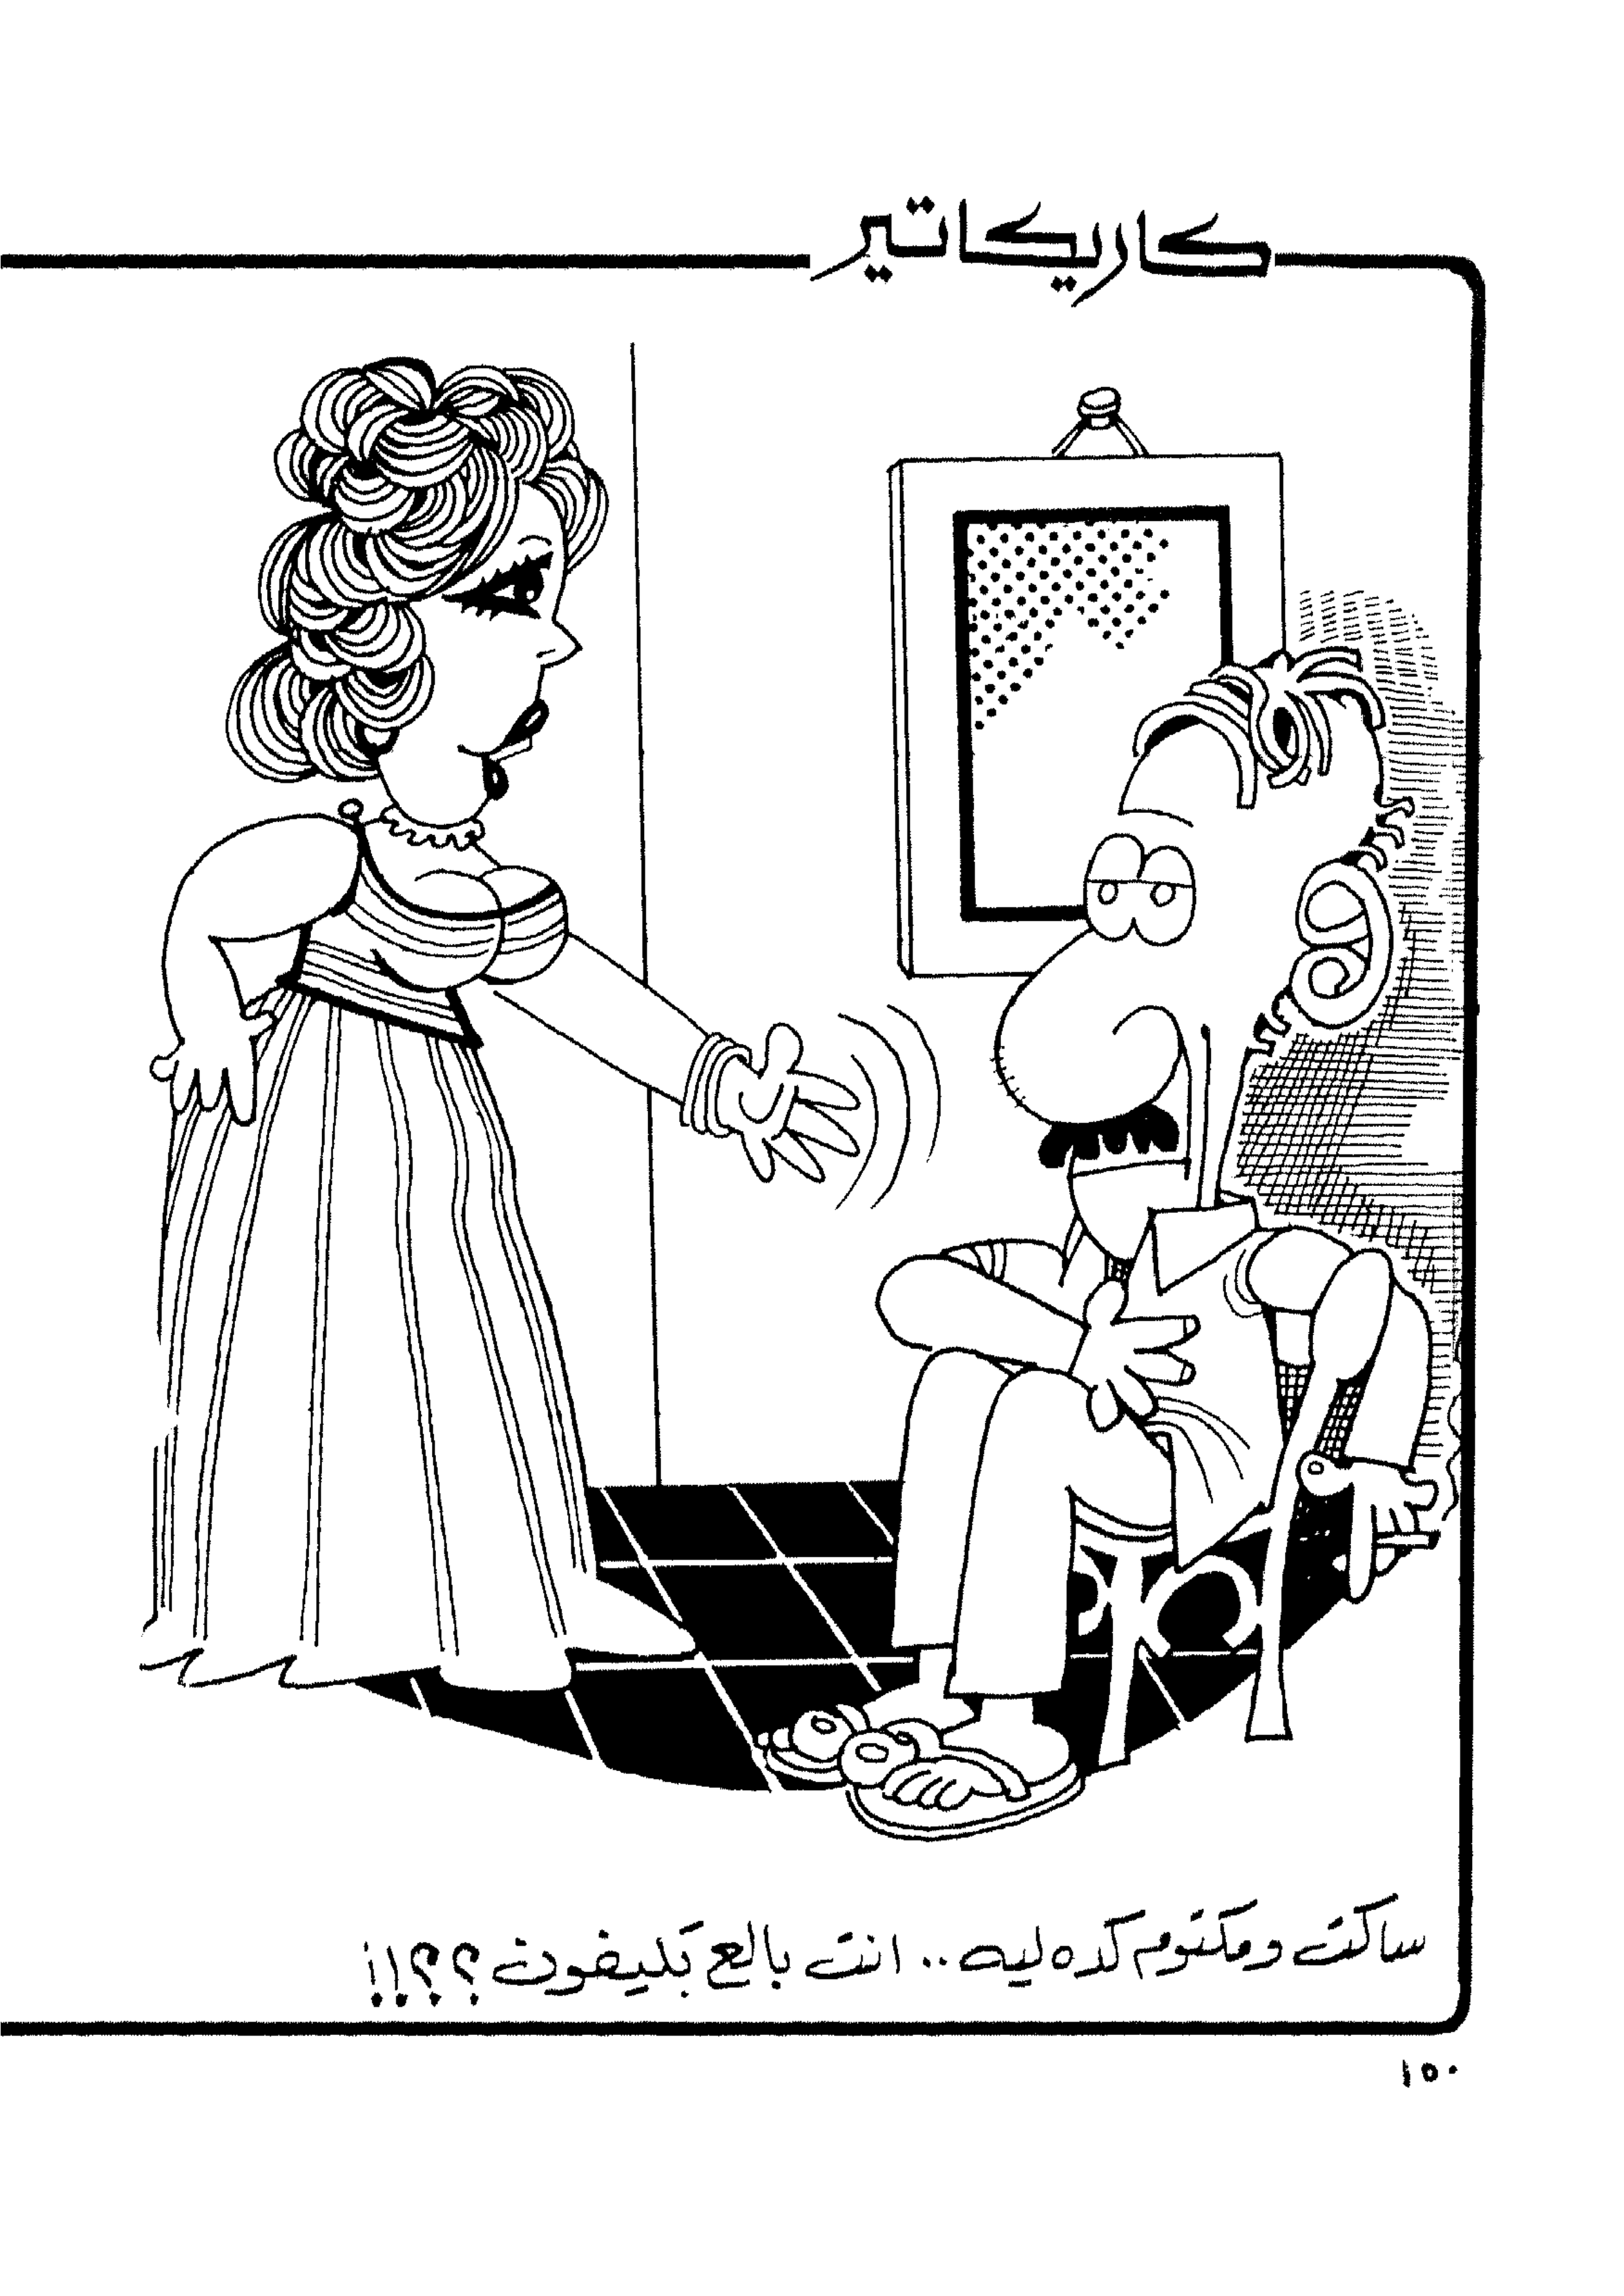 كاريكاتير
ساكت ومكتوم كده ليه .. انت بالع تليفون ؟؟!!
١٥٠